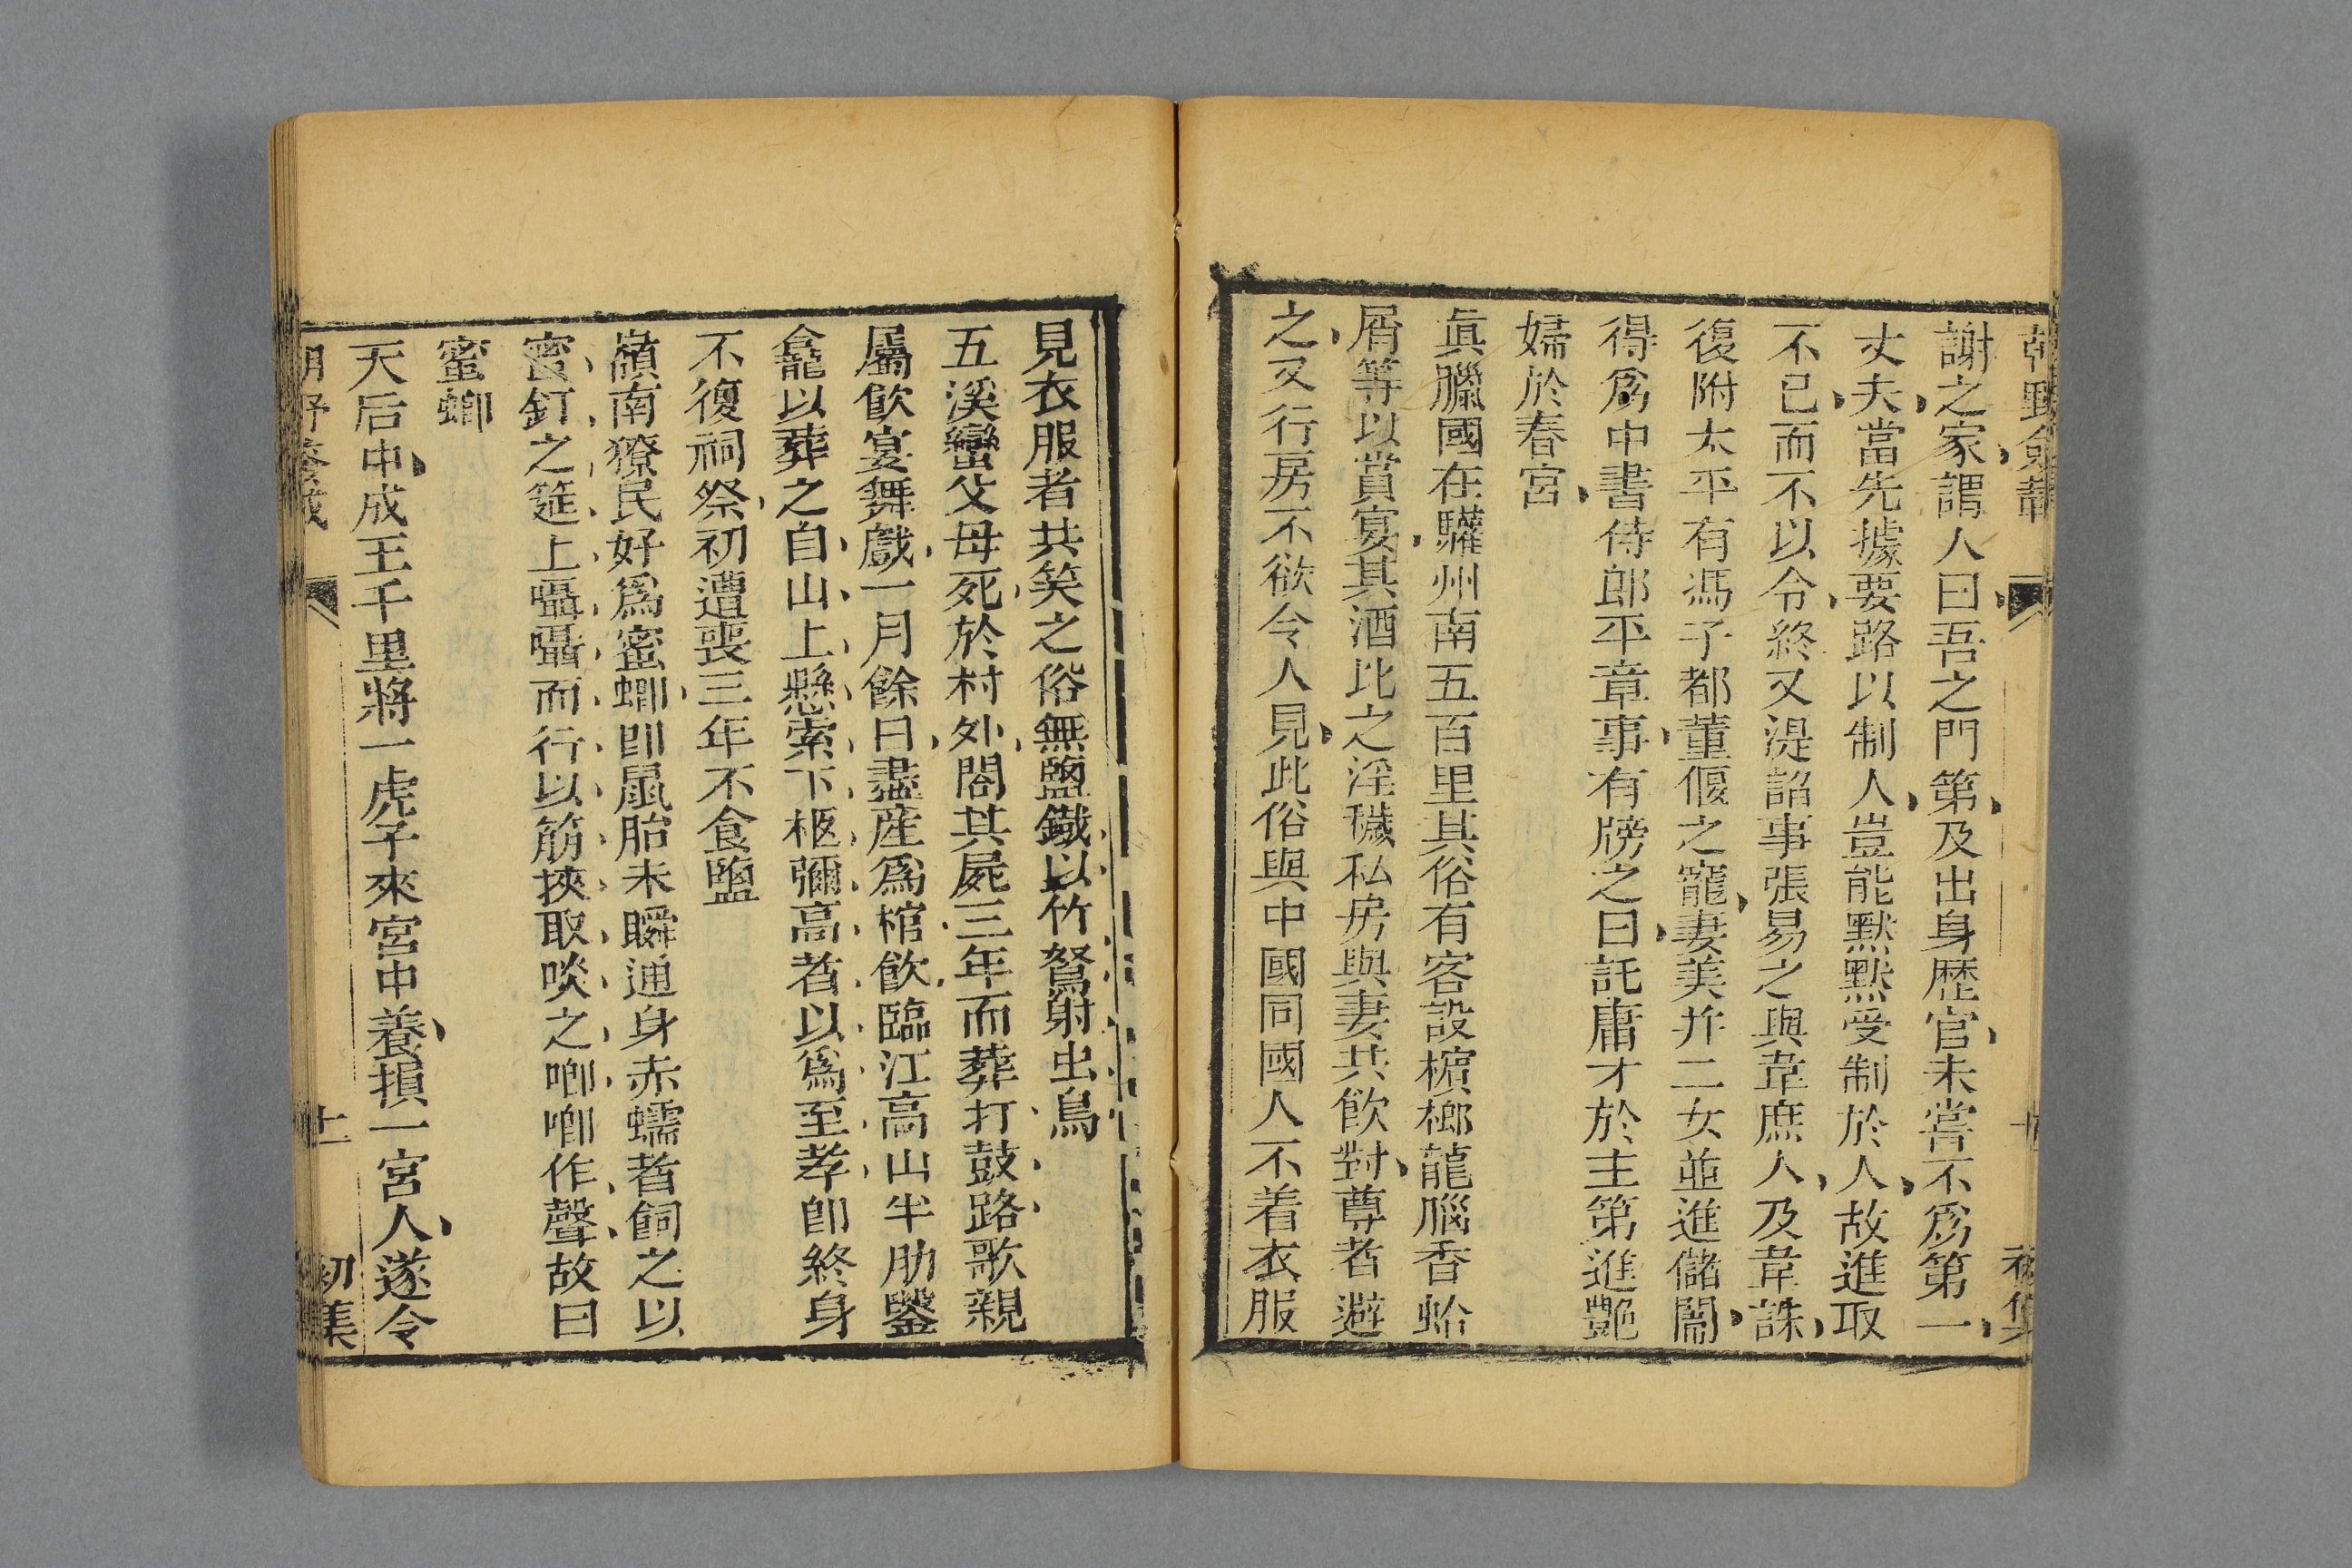 朝野僉載
謝之家謂人曰吾之門第及出身歷官未嘗不爲第一
丈夫當先據要路以制人豈能默默受制於人故進取
不已而不以令終又湜諂事張易之與韋庶人及韋誅
復附太平有馮子都董偃之寵妻美并二女並進儲闈
得爲中書侍郎平章事有牓之曰託庸才於主第進艷
婦於春宮
眞臘國在驩州南五百里其俗有客設檳榔龍腦香蛤
屑等以賞宴其酒比之淫穢私房與妻共飲對尊者避
之又行房不欲令人見此俗與中國同國人不着衣服
見衣服者共笑之俗無鹽鐵以竹弩射虫鳥
五溪蠻父母死於村外閣其屍三年而葬打鼓路歌親
屬飲宴舞戲一月餘日盡産爲棺飲臨江高山半肋鑿
龕以葬之自山上懸索下柩彌高者以爲至孝卽終身
不復祠祭初遭喪三年不食鹽
嶺南獠民好爲蜜蝍卽鼠胎未瞬通身赤蠕者飼之以
蜜釘之筵上囁囁而行以筋挾取啖之唧唧作聲故曰
蜜蝍
天后中成王千里將一虎子來宮中養損一宮人遂令
朝野僉載
十一
初集